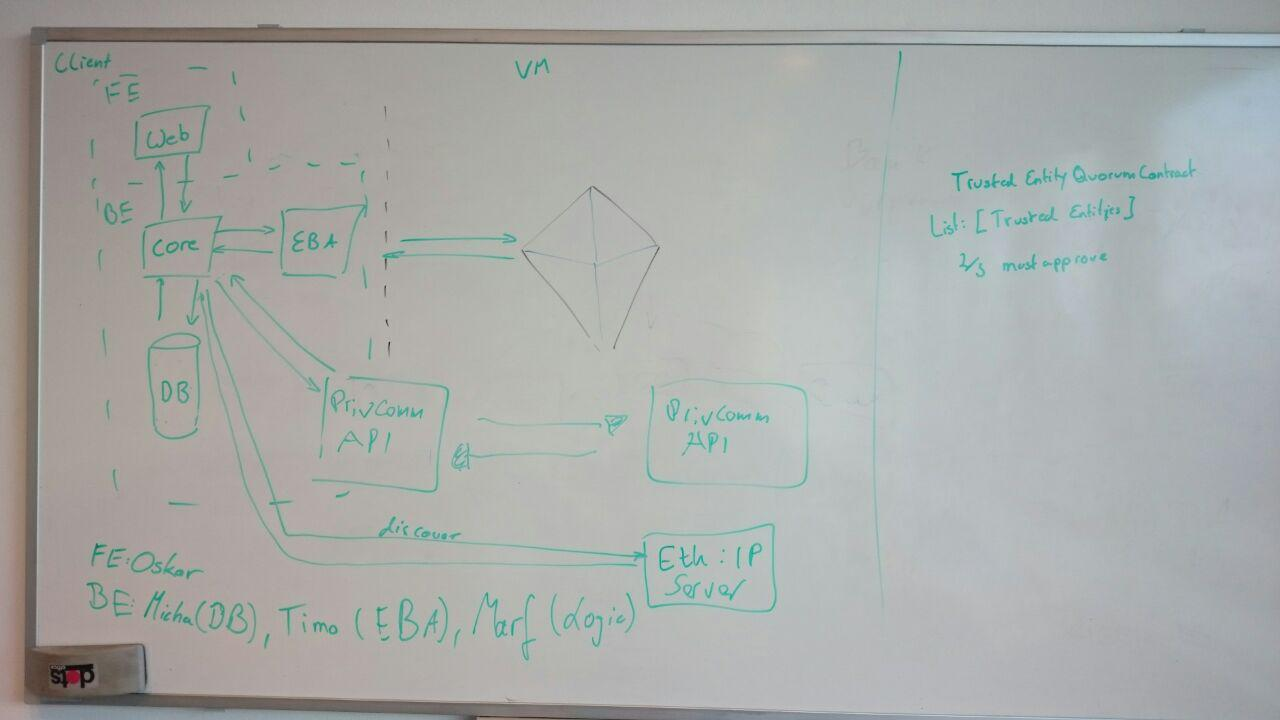 Client
VM
FE
Web
BE
Core
EBA
DB
PrivComm
API
PrivComm
API
discover
Eth : IP
Server
FE: Oskar
BE: Micha (DB), Timo (EBA), Marf (Logic)
Trusted Entity Quorum Contract
List: [Trusted Entities]
2/3 must approve
dots
office